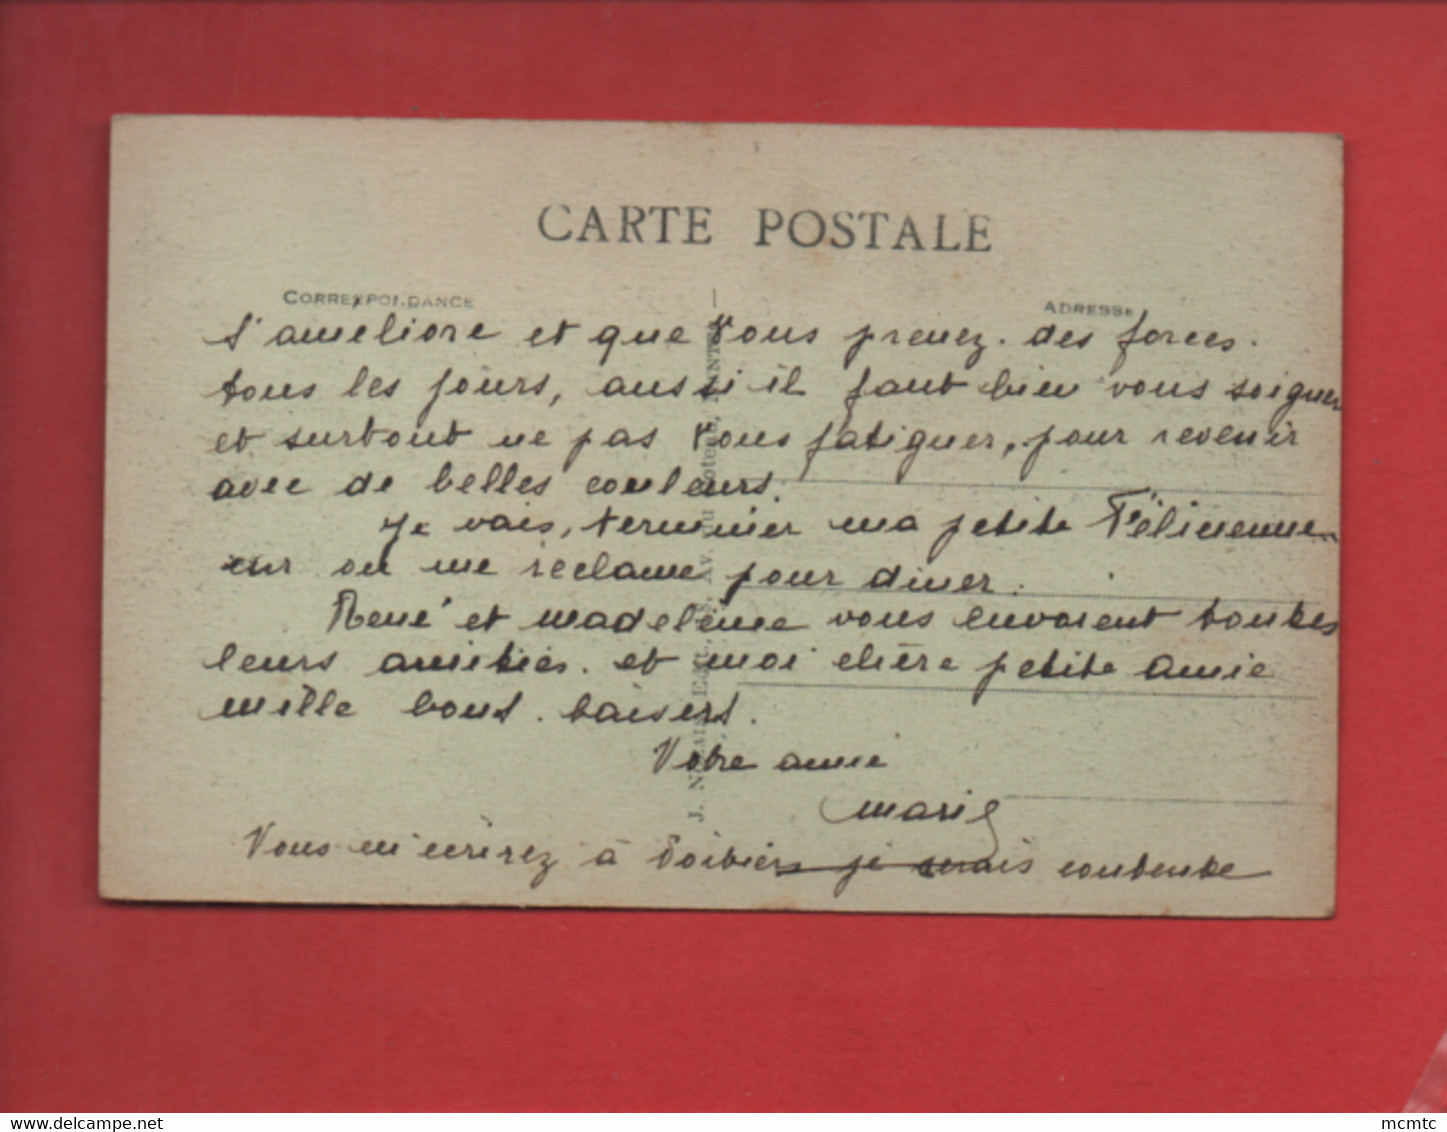 CARTE POSTALE
CORRESPONDANCE
ADRESSE
s'améliore et que vous prenez. des forces.
tous les jours, aussi il faut bien vous soigner
et surtout ne pas vous fatiguer, pour revenir
avec de belles couleurs.
Je vais, terminer ma petite Félicienne
car on me réclame pour diner.
René et Madeleine vous envoient toutes
leurs amitiés. et moi chère petite amie
mille bons. baisers.
Votre amie
Marie
Vous m'écrirez à je serais contente
J. NOZAIS, Édit., Av. du NANTES
delcampe.net
mcmtc